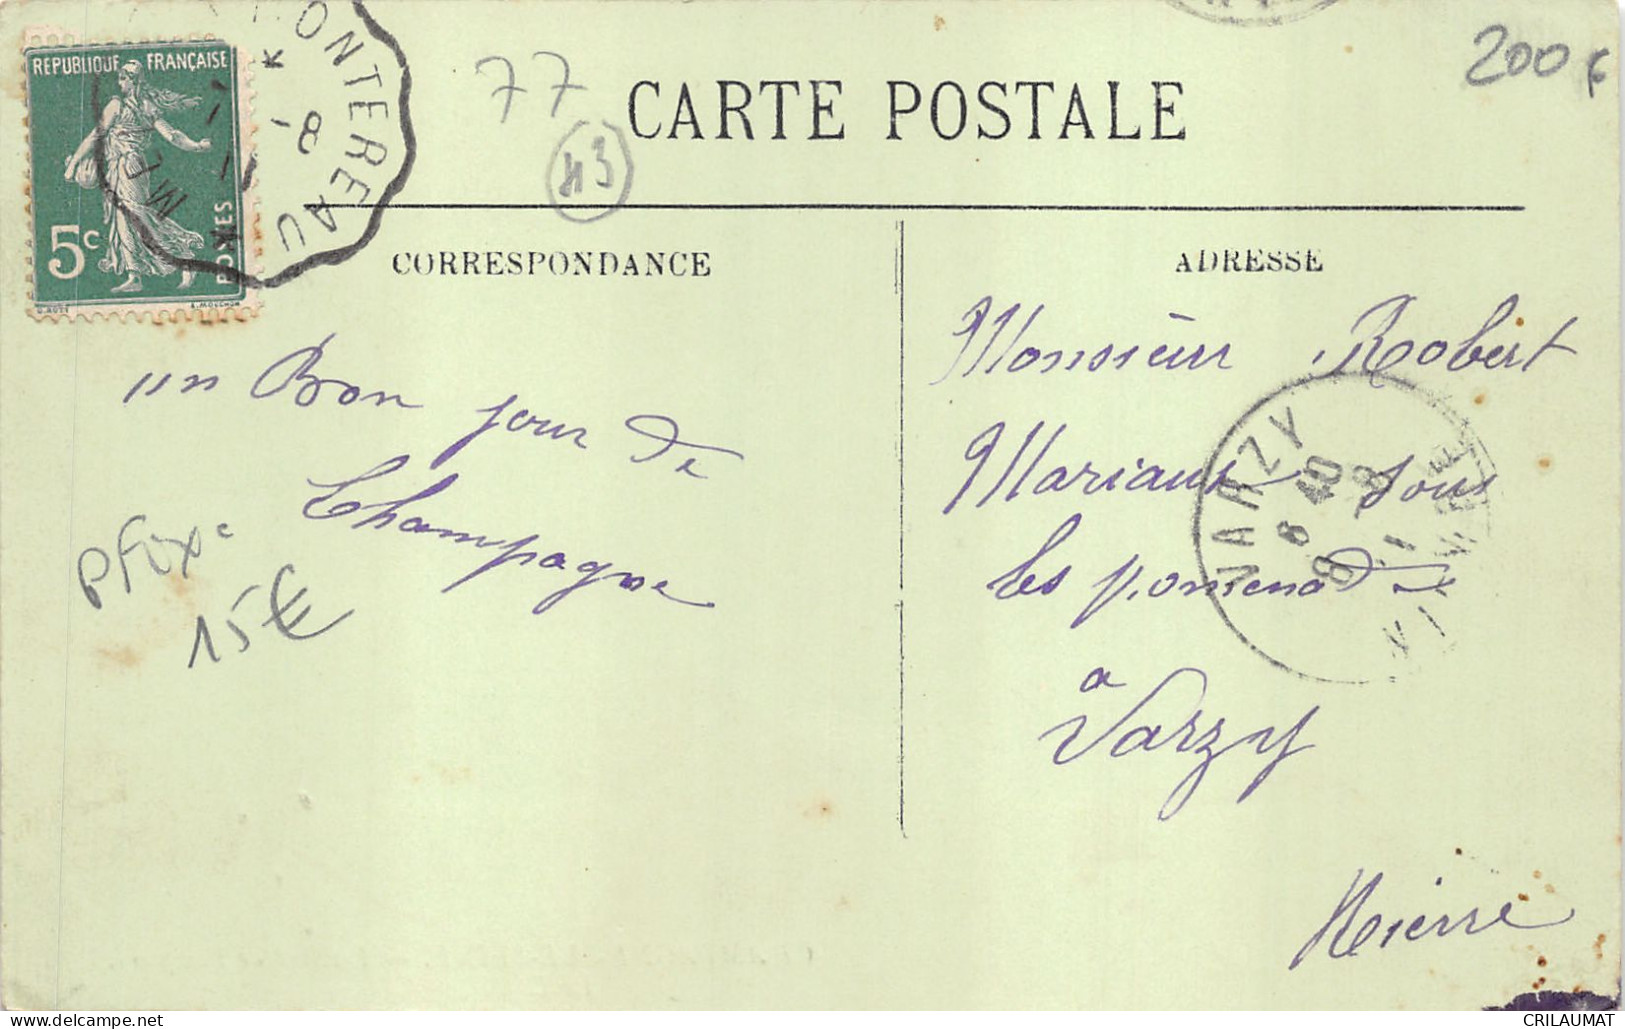 REPUBLIQUE FRANÇAISE
5c
POSTES
MONTEREAU
8-
77
43
CARTE POSTALE
200 €
CORRESPONDANCE
un Bon jour de
Champagne
Pfixe
15€
ADRESSE
Monsieur Robert
Mariaux sous
les promenades
a
Varzy
Nièvre
VARZY
8 40
8 -1
NIÈVRE
CRILAUMAT